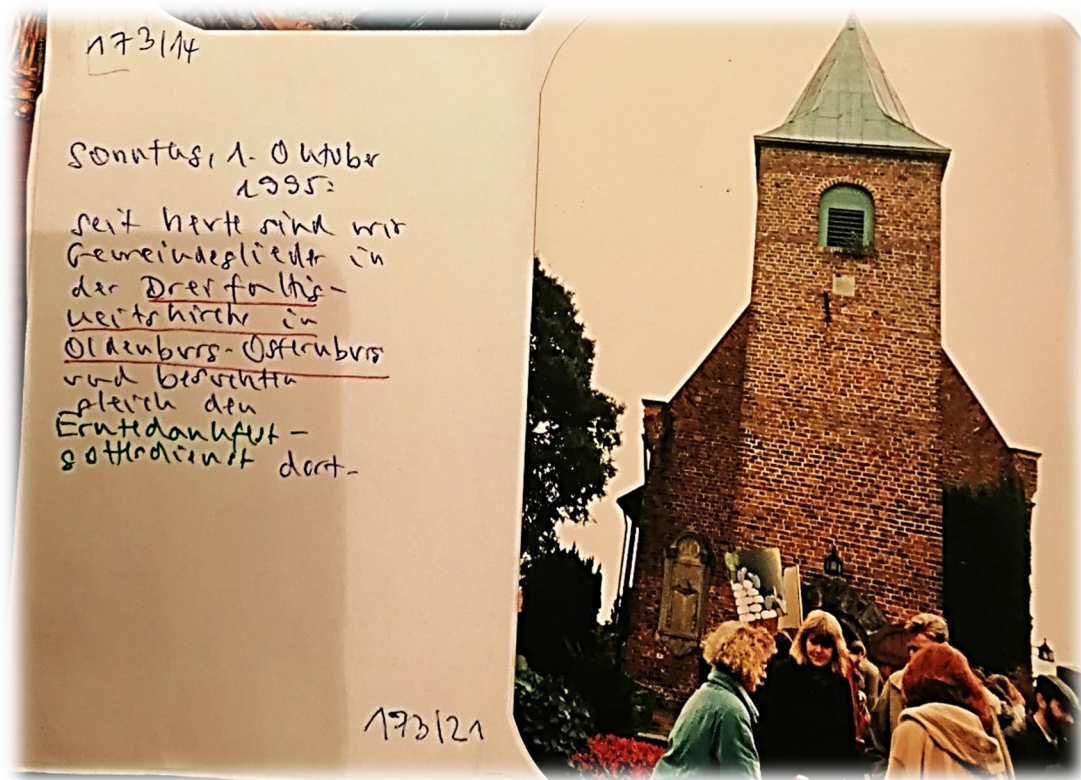 173/14
Sonntag, 1. Oktober
1995:
seit heute sind wir
Gemeindeglieder in
der Dreifaltig-
keitskirche in
Oldenburg-Osternburg
und besuchten
gleich den
Erntedankfest-
gottesdienst dort.
173/21